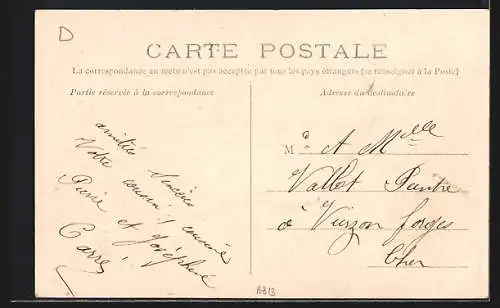 D
CARTE POSTALE
La correspondance au recto n'est pas acceptée par tous les pays étrangers (se renseigner à la Poste)
Partie réservée à la correspondance
Adresse du destinataire
amitiés sincères
Votre cousin, cousine
Pierre et Joséphine
Carré
M et Melle
Vallet Peintre
à Vierzon forges
Cher